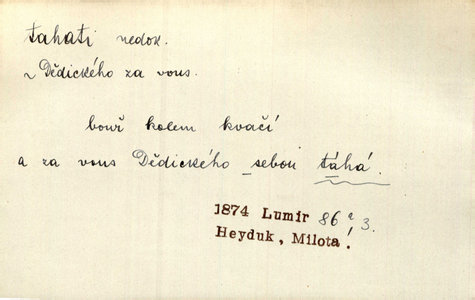 tahati nedok.
~ Dědického za vous.
bouř kolem kvačí
a za vous Dědického sebou táhá.
1874 Lumír 86 a, 3.
Heyduk, Milota.